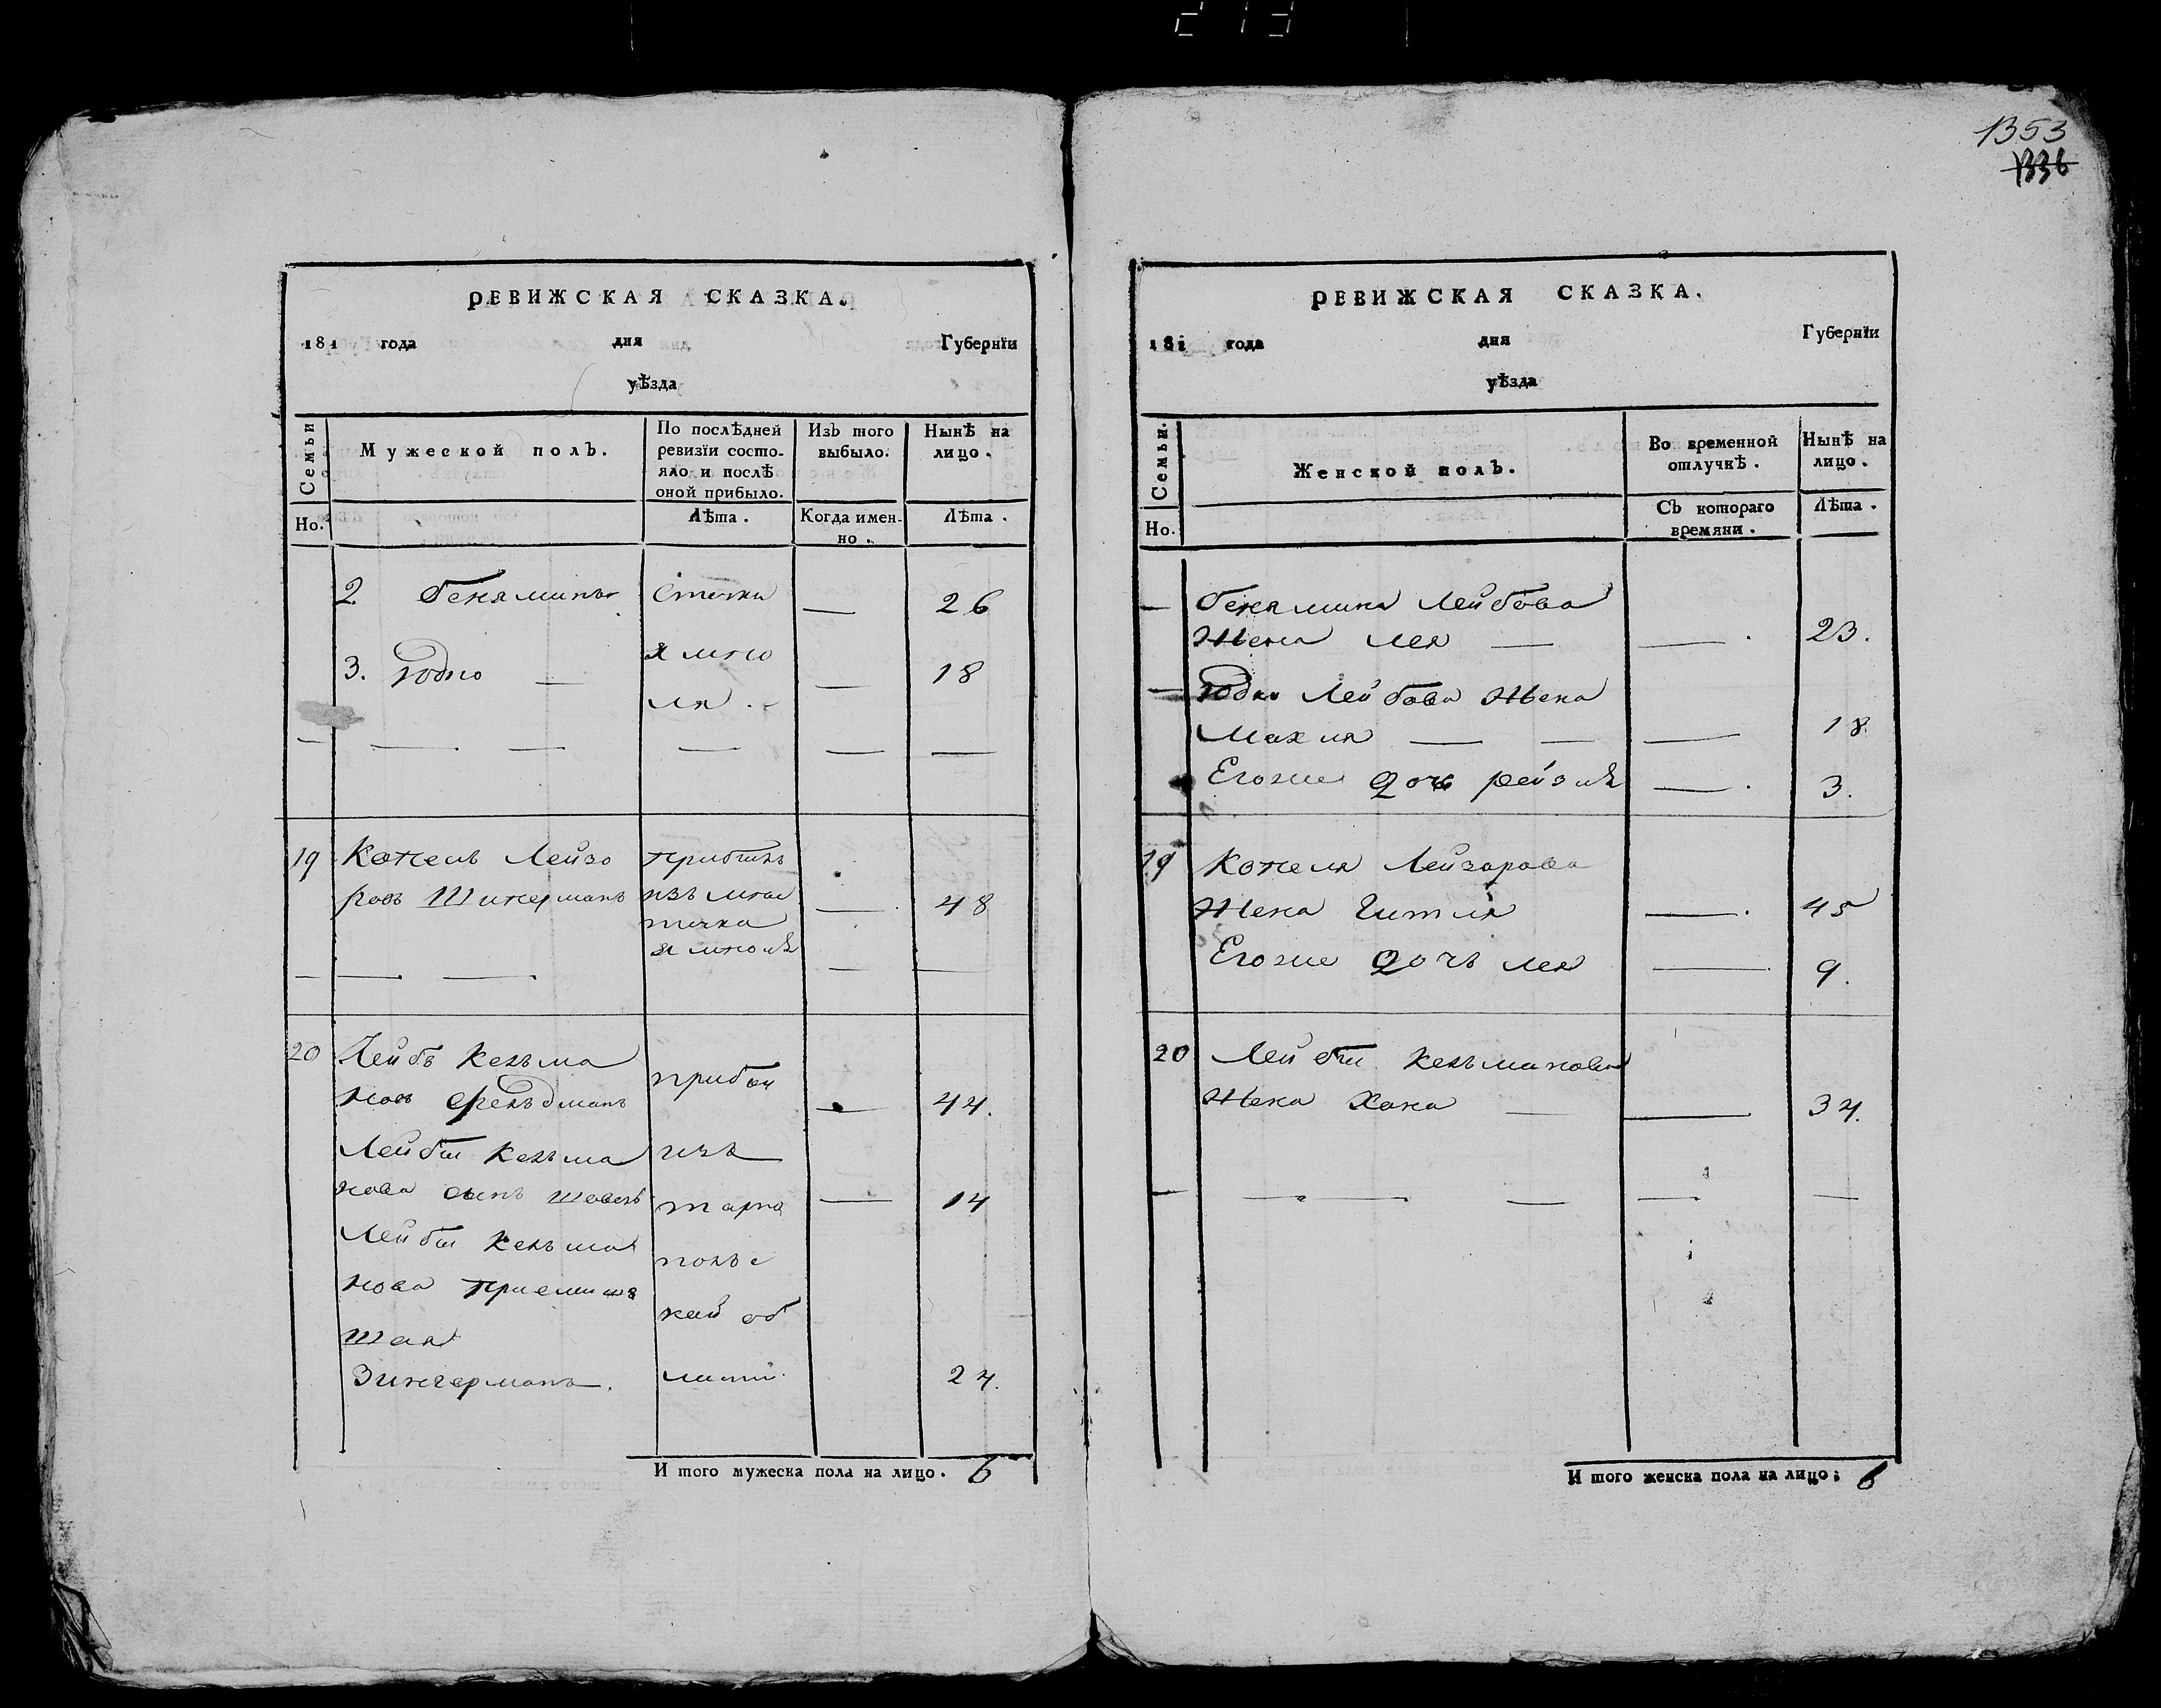 213
1353
1336
РЕВИЖСКАЯ СКАЗКА.
181 года дня Губернїи
уѣзда
Семьи
Но.
Мужеской полъ.
По послѣдней
ревизїи состо-
яло и послѣ
оной прибыло.
Лѣта.
Изъ того
выбыло.
Когда имен-
но.
Нынѣ на
лицо.
Лѣта.
2 Беняминъ — 26
3. Юдко — — 18
— — — — — —
19 Копель Лейзо прибылъ
ровъ изъ мѣс — 48
течка
— — — — —
20 Лейбъ Кельма
новъ Фельдманъ прибыл — 44.
Лейби Кельма изъ
нова сынъ тарно — 14
Лейби Кельма польс
нова приемышъ кой об
Шая
Зингерманъ. ласти. 24.
И того мужеска пола на лицо. 6
РЕВИЖСКАЯ СКАЗКА.
181 года дня Губернїи
уѣзда
Семьи.
Но.
Женской полъ.
Во временной
отлучкѣ.
Съ котораго
времяни.
Нынѣ на
лицо.
Лѣта.
— Бенямина Лейбова
жена Лея — — 23.
— Юдки Лейбова жена
Махля — — — 18.
Егоже дочь Рейзля — 3.
19 Копеля Лейзорова
жена Гитля — 45
Егоже дочь Лея — 9.
20 Лейби Кельманова
жена Хана — — 34.
— — — — — —
И того женска пола на лицо: 6